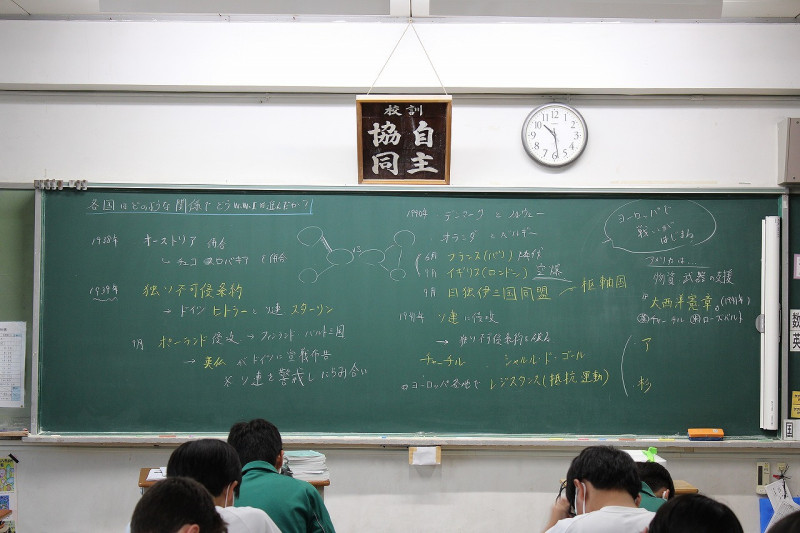 校訓
自主
協同
12
各国はどのような関係でどうW.W.Ⅱは進んだか?
1938年 オーストリア 併合
→ チェコスロバキア 併合
1939年 独ソ不可侵条約
→ ドイツ ヒトラー と ソ連 スターリン
9月 ポーランド侵攻 → フィンランド バルト三国
→ 英仏 が ドイツに宣戦布告
※ ソ連を警戒しにらみ合い
1940年 デンマーク と ノルウェー
オランダ と ベルギー
6月 フランス(パリ)
イギリス(ロンドン) 空爆
9月 日独伊三国同盟 → 枢軸国
1941年 ソ連に侵攻
→ 独ソ不可侵条約を破る
チャーチル シャルル・ド・ゴール
ヨーロッパ各地で レジスタンス(抵抗運動)
ヨーロッパで
戦いが
はじまる
アメリカは…
物資 武器の支援
"大西洋憲章"(1941年)
英 チャーチル 米 ローズベルト
ア
杉
数
英
国